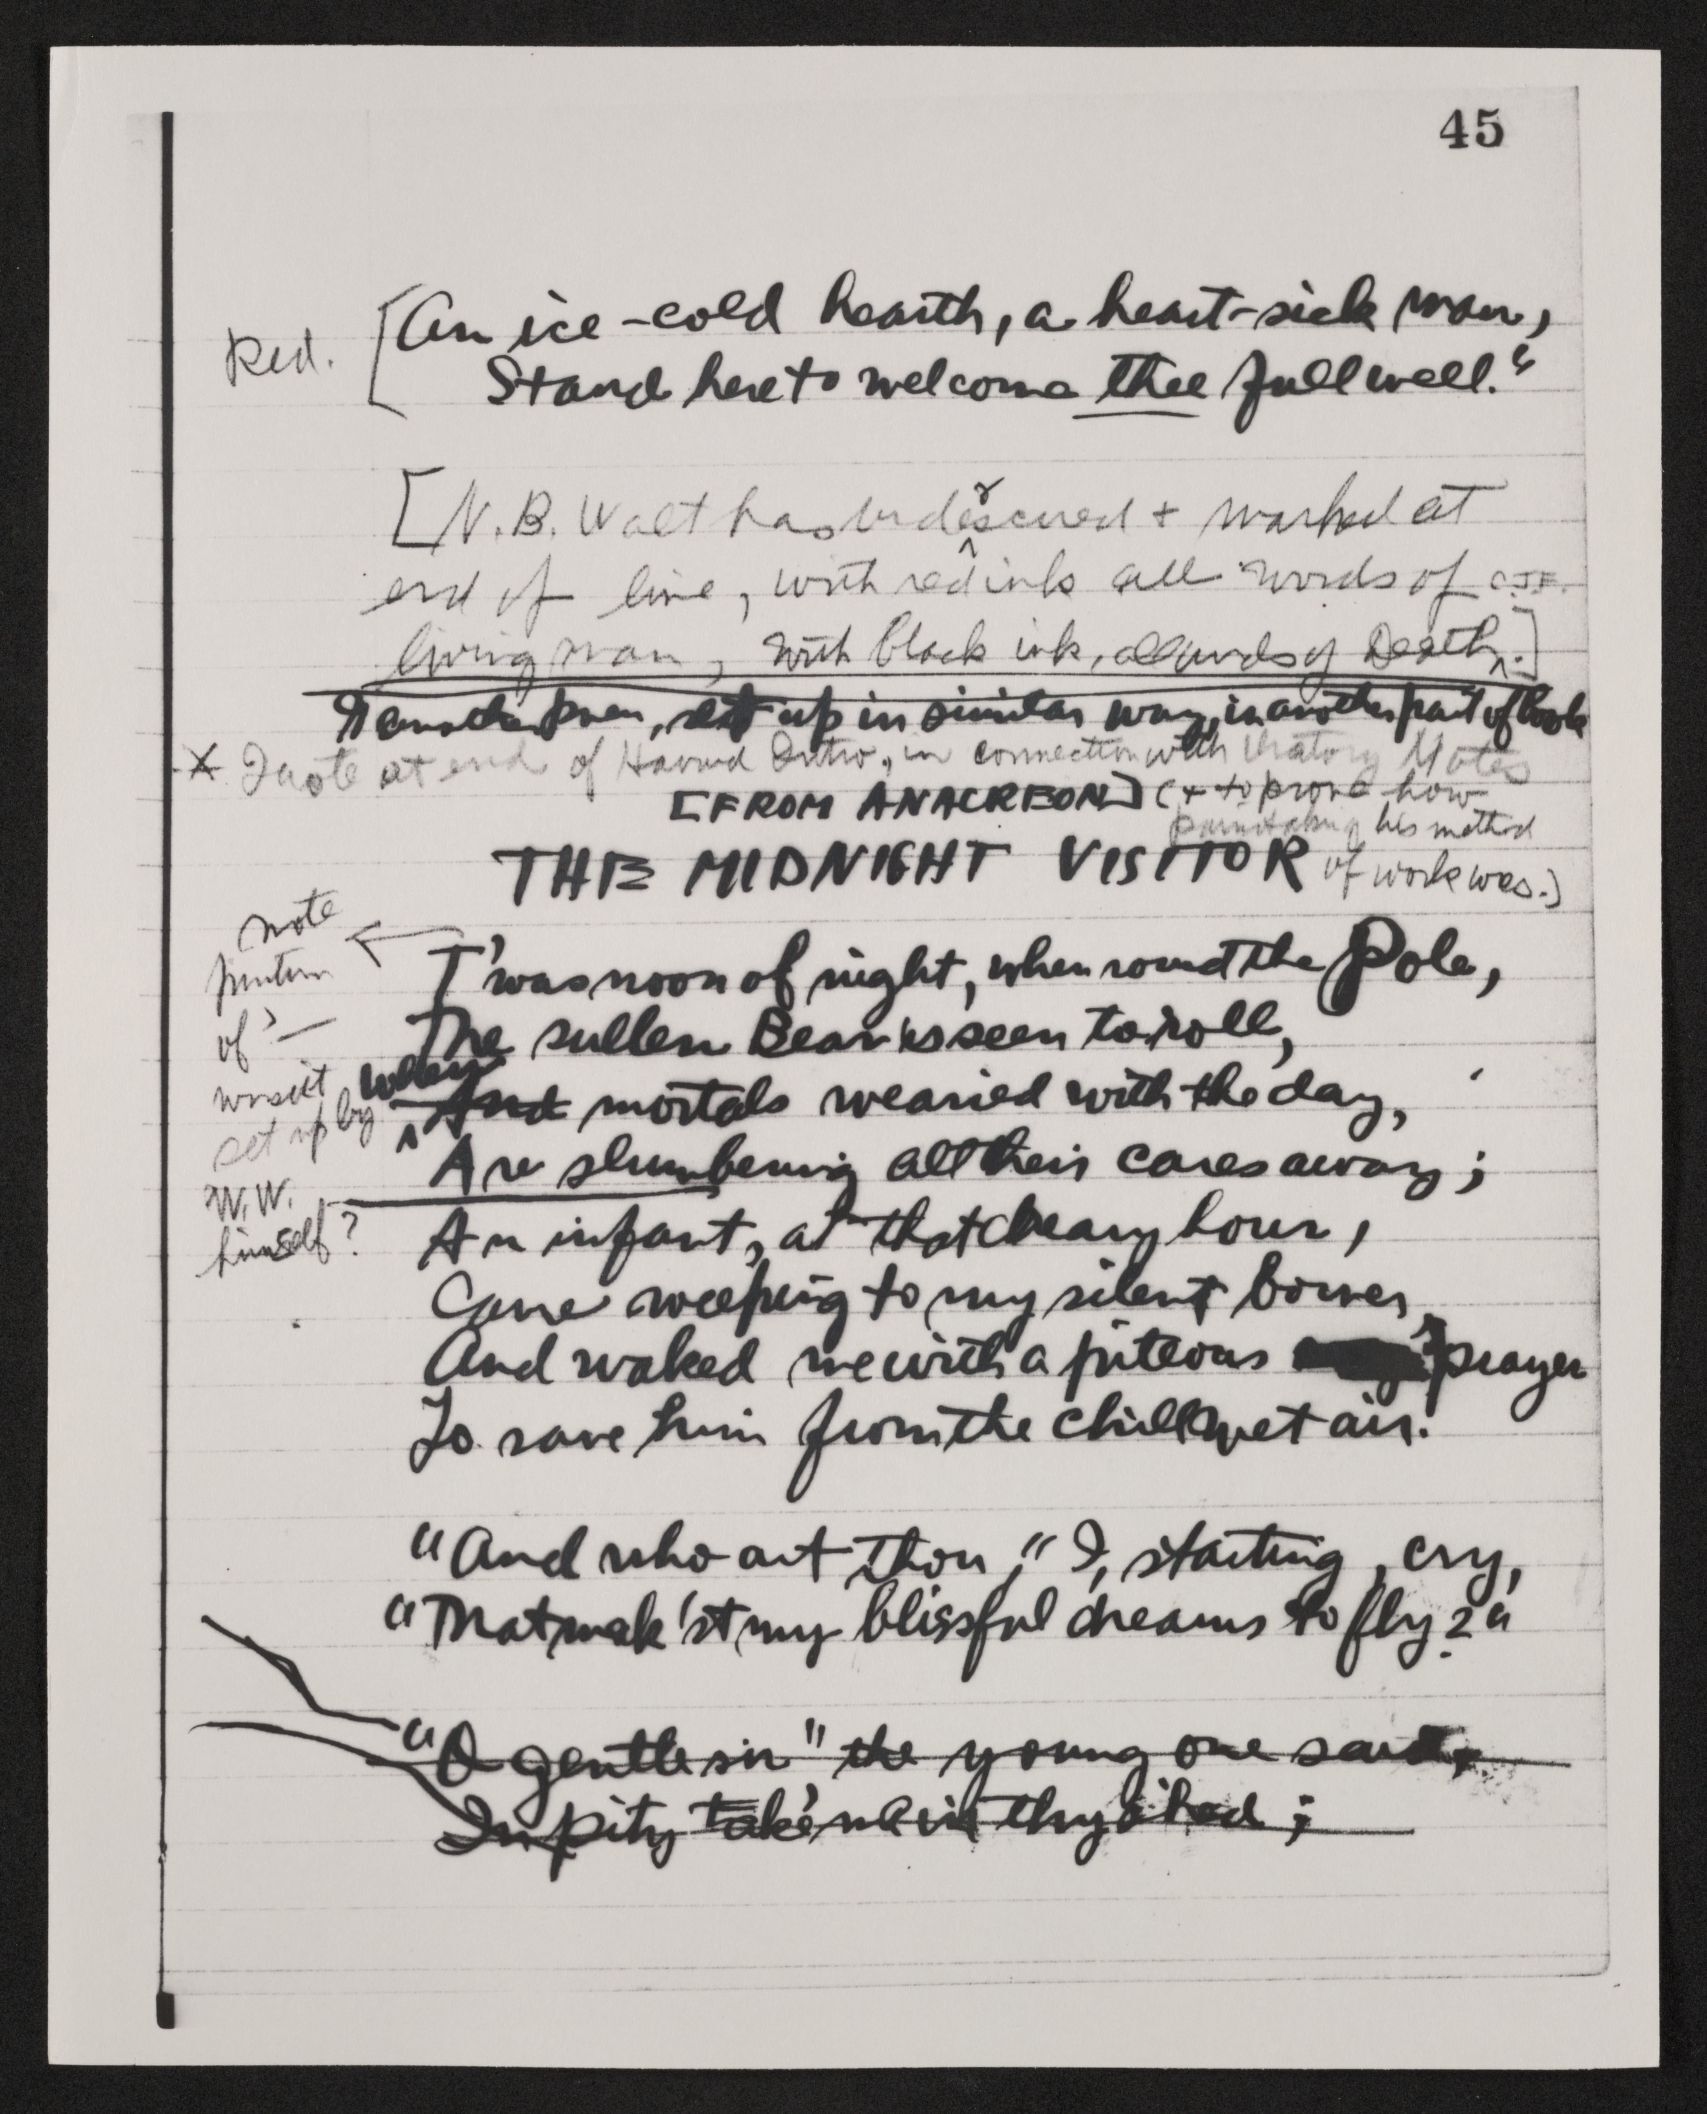 45
Red. [An ice-cold hearth, a heart-sick man,
Stand here to welcome thee full well."
[N.B. Walt has underscored + marked at
end of line, with red ink all words of
living man, with black ink, all words of Death.]
& another poem, set up in similar way, in another part of book
X Quote at end of Harvard Intro, in connection with Oratory Notes
[FROM ANACREON] (+ to prove how
painstaking his method
THE MIDNIGHT VISITOR of work was.)
note
printer
of' —
was it
set up by
W.W.
himself?
T'was noon of night, when round the Pole,
The sullen Bear is seen to roll,
When
And mortals wearied with the day,
Are slumbering all their cares away;
An infant, at that dreary hour,
Came weeping to my silent bower,
And waked me with a piteous prayer
To save him from the chill wet air.
"And who art thou," I, starting, cry,
"That mak'st my blissful dreams to fly?"
"O gentle sir" the young one said,
In pity take me in thy shed;